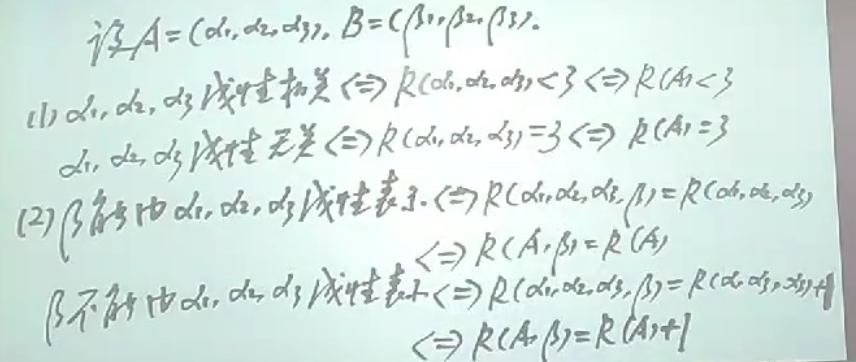 设A=(α₁,α₂,α₃), B=(β₁,β₂,β₃).
(1) α₁,α₂,α₃线性相关⇔R(α₁,α₂,α₃)<3⇔R(A)<3
α₁,α₂,α₃线性无关⇔R(α₁,α₂,α₃)=3⇔R(A)=3
(2) β能由α₁,α₂,α₃线性表示⇔R(α₁,α₂,α₃,β)=R(α₁,α₂,α₃)
⇔R(A,β)=R(A)
β不能由α₁,α₂,α₃线性表示⇔R(α₁,α₂,α₃,β)=R(α₁,α₂,α₃)+1
⇔R(A,β)=R(A)+1